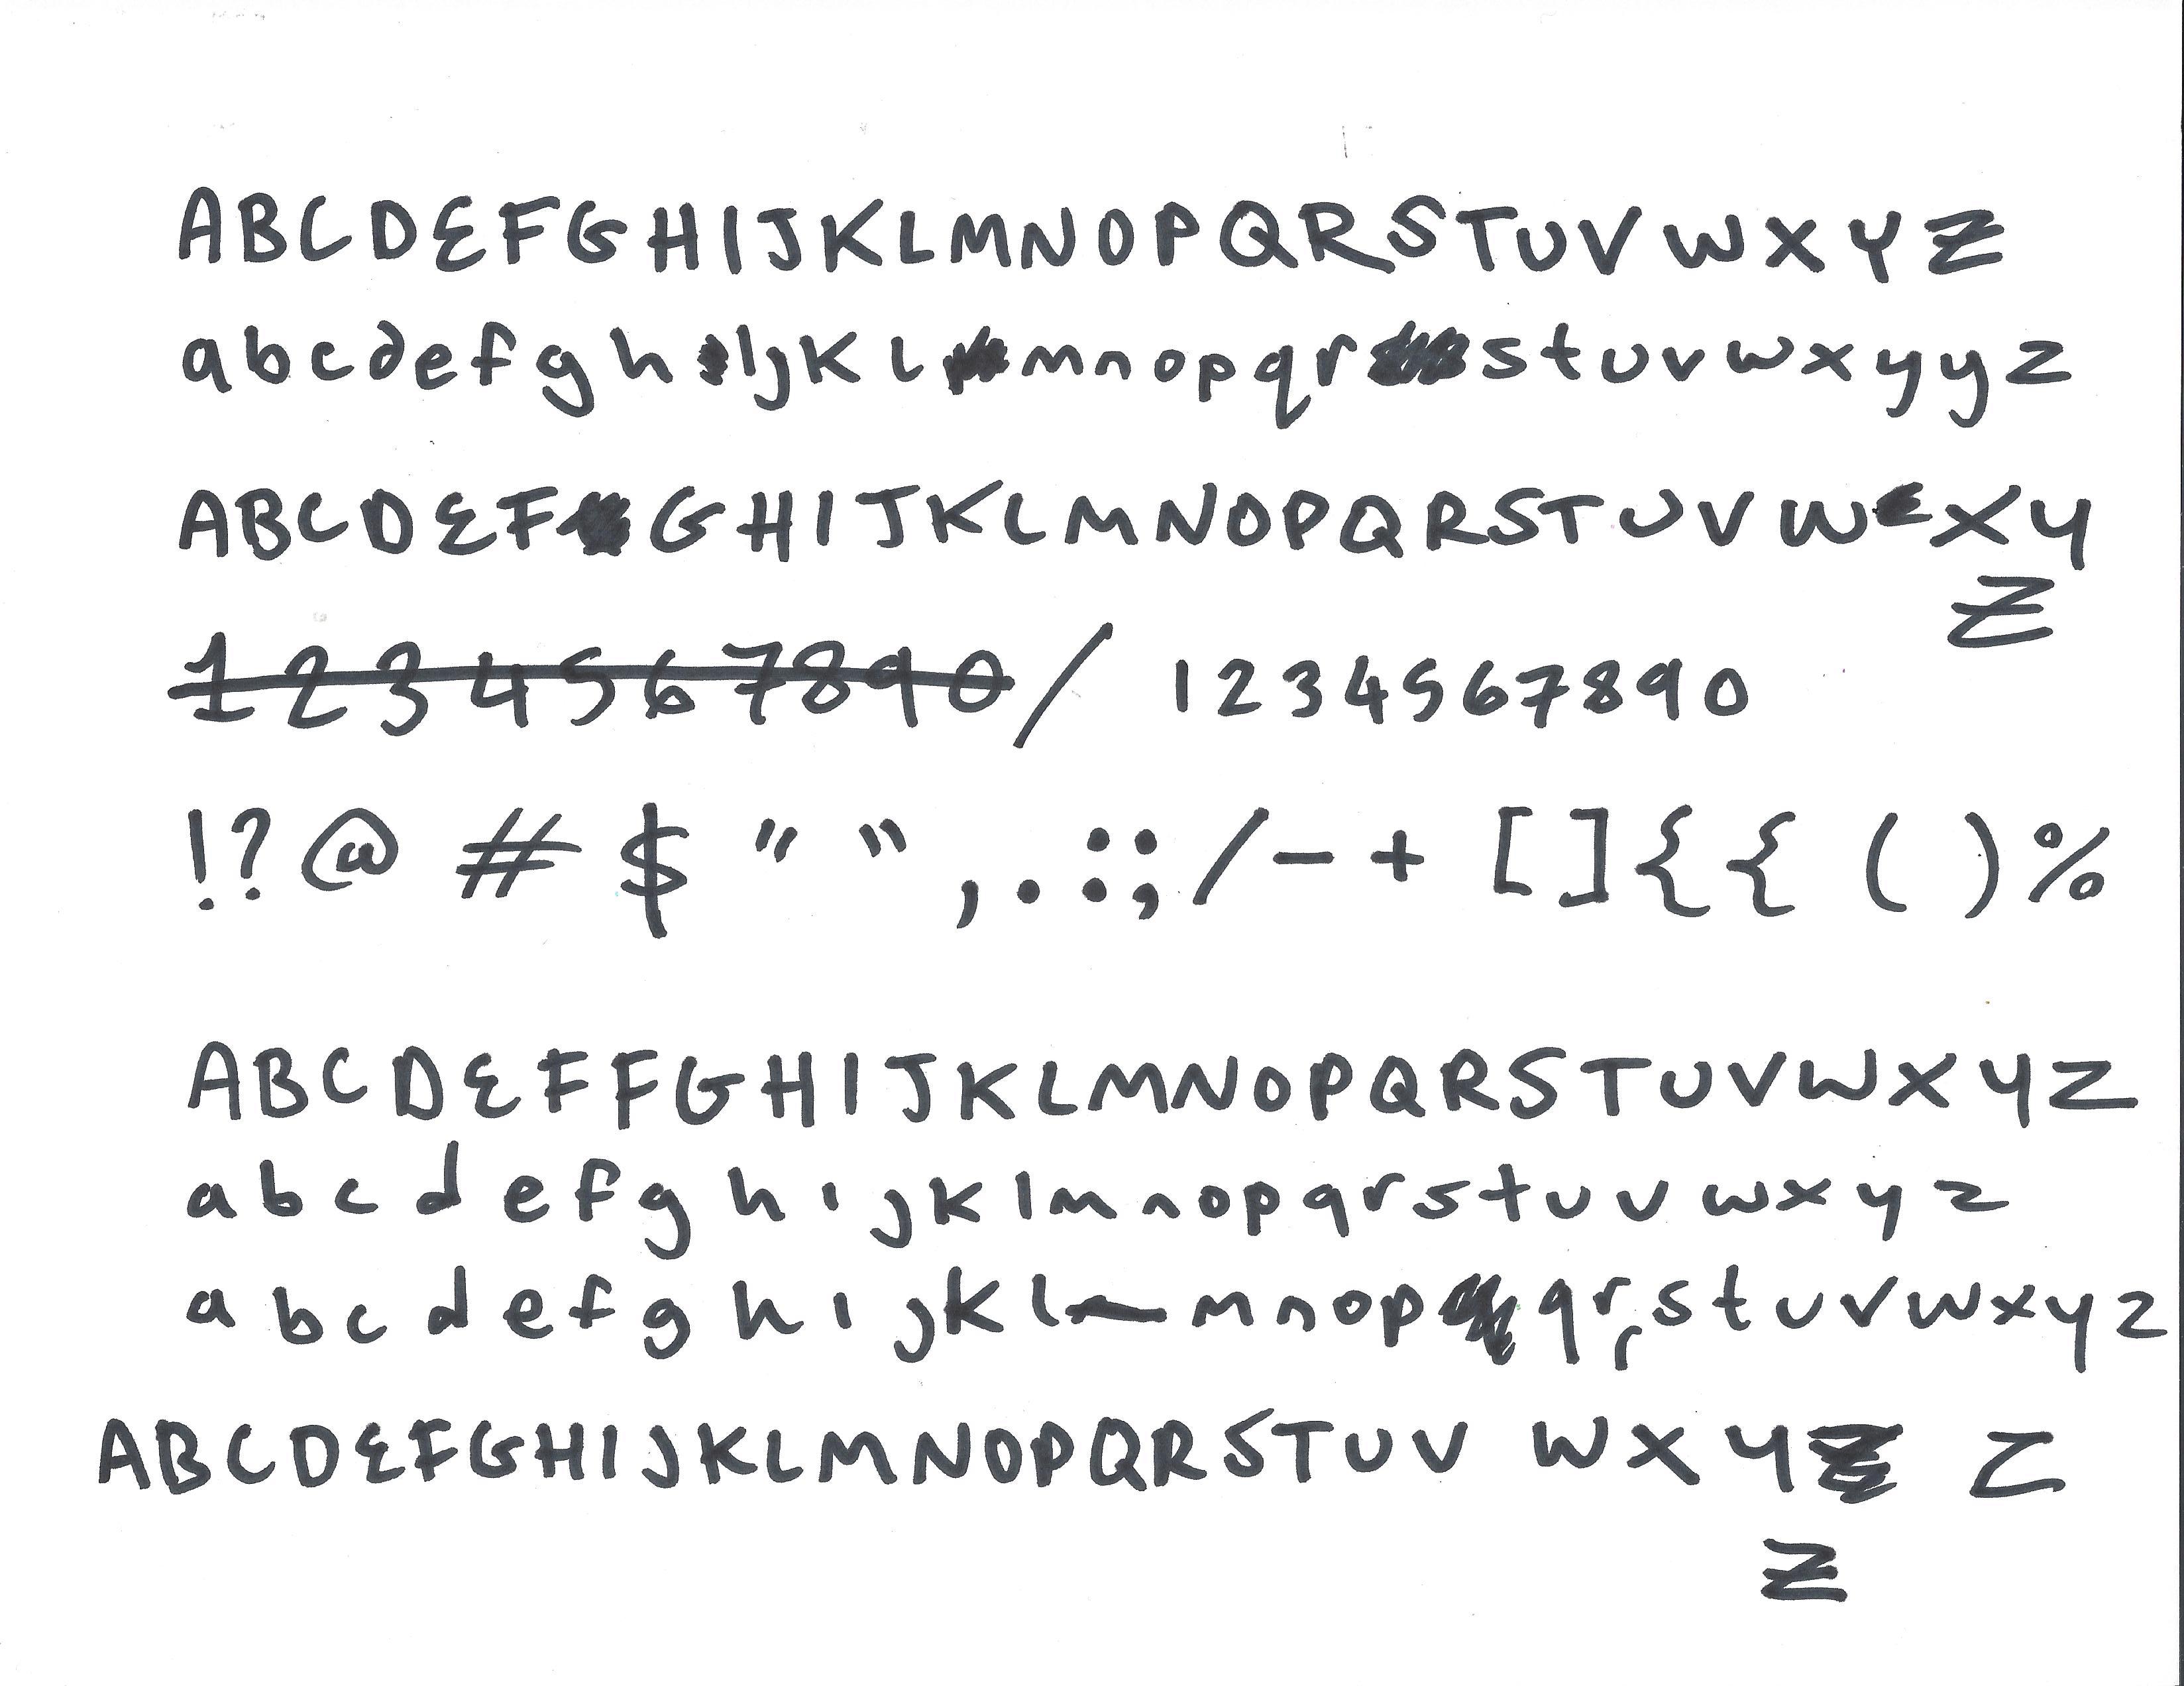 ABCDEFGHIJKLMNOPQRSTUVWXYZ
abcdefghijkLmnopqrstuvwxyyz
ABCDEFGHIJKLMNOPQRSTUVWXY
Z
1234567890/ 1234567890
!?@ # $ " " ,.:;/-+ []{{ ()%
ABCDEFFGHIJKLMNOPQRSTUVWXYZ
abcdefghijklmnopqrstuvwxyz
abcdefghijklmnopqrrstuvwxyz
ABCDEFGHIJKLMNOPQRSTUVWXYZ Z
Z